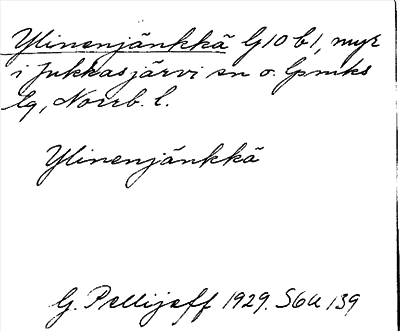 Ylinenjänkkä G10 b1, myr
i Jukkasjärvi sn o. lpmks
lg, Norrb. l.
Ylinenjänkkä
G. Pellijeff 1929. S6U 139